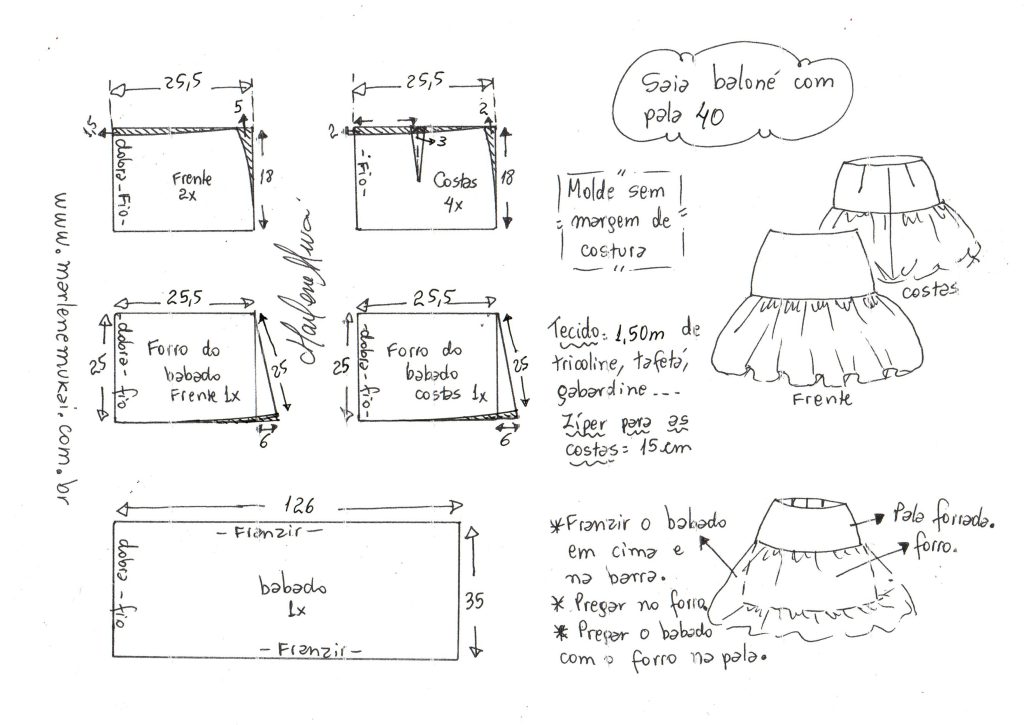 Saia baloné com
pala 40
25,5
5
5
18
dobra-Fio-
Frente
2x
25,5
2
2
3
18
-Fio-
Costas
4x
Molde sem
margem de
costura
costas
Frente
www.marlenemukai.com.br
25,5
25
dobra-fio
Forro do
babado
Frente 1x
25
6
25,5
25
-dobra-fio-
Forro do
babado
costas 1x
25
6
Tecido: 1,50m de
tricoline, tafetá,
gabardine...
Zíper para as
costas = 15cm
126
-Franzir-
dobra-fio
babado
1x
35
-Franzir-
*Franzir o babado
em cima e
na barra.
* Pregar no forro.
* Pregar o babado
com o forro na pala.
Pala forrada.
forro.